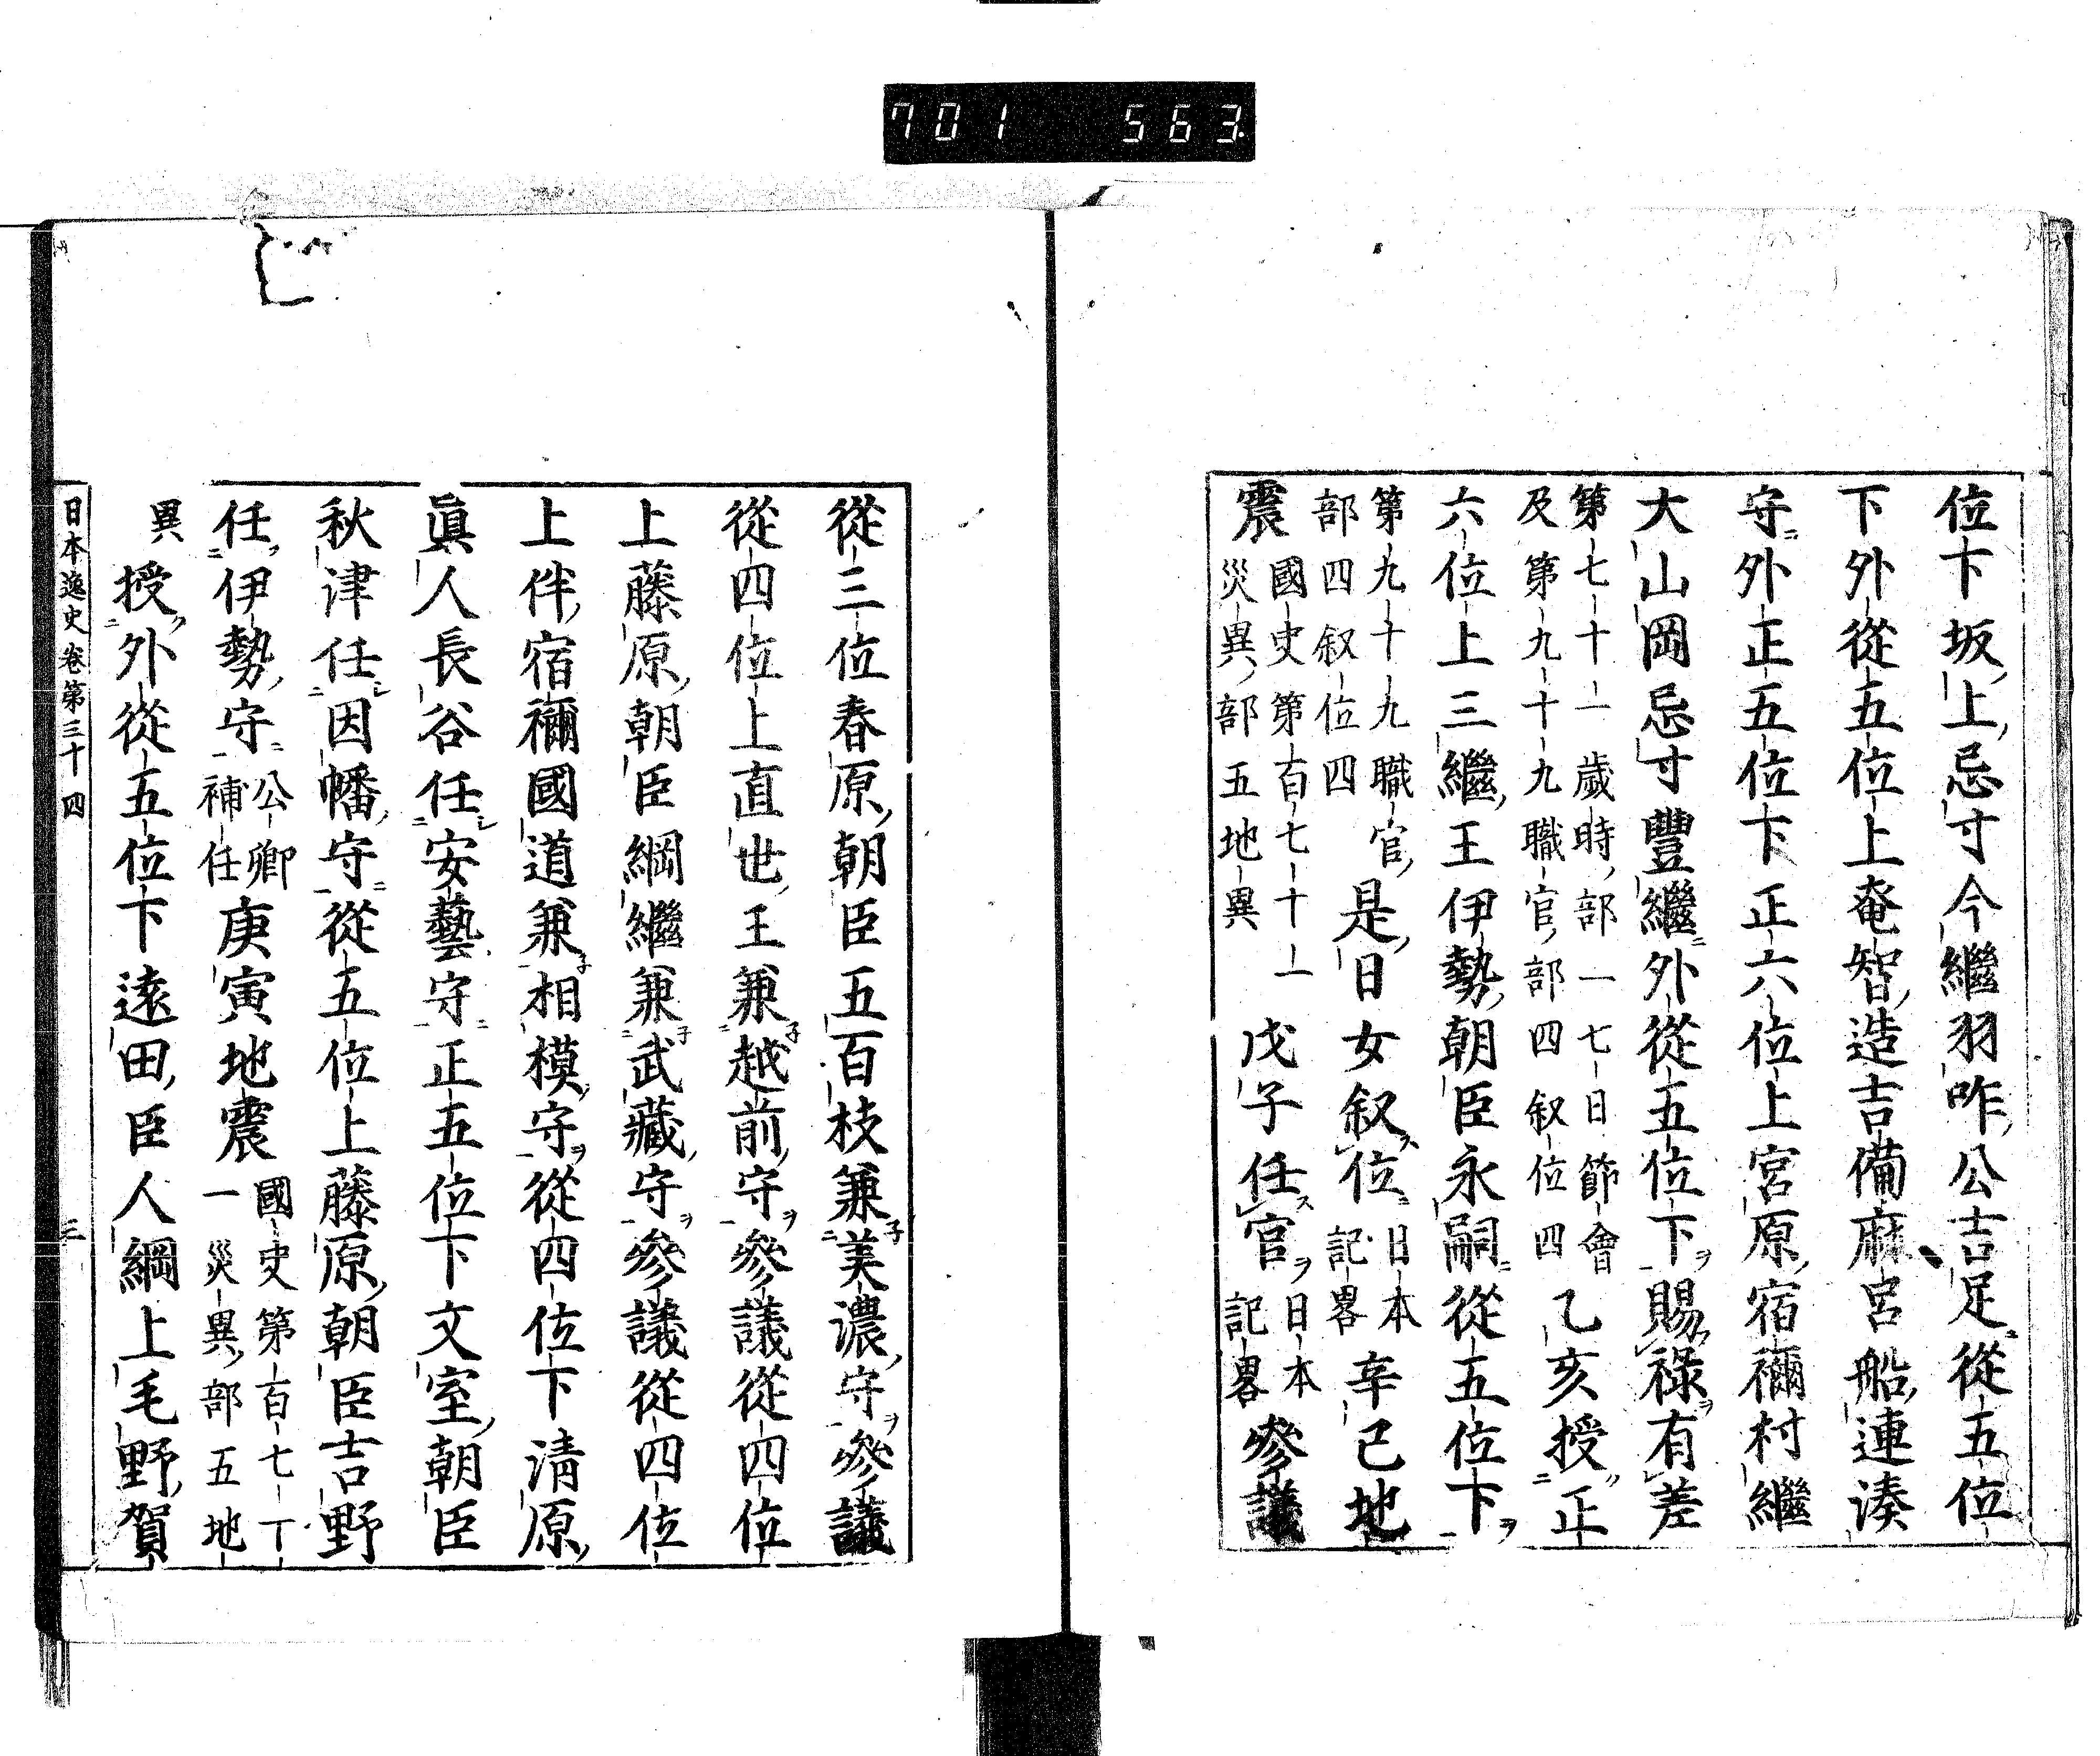 701 563
位下坂上忌寸今繼羽咋公吉足從五位
下外從五位上奄智造吉備麻呂船連湊
守外正五位下正六位上宮原宿禰村繼
大山岡忌寸豐繼外從五位下賜祿有差
第七十一歲時部一七日節會
及第九十九職官部四叙位四
乙亥授正
六位上三繼王伊勢朝臣永嗣從五位下
第九十九職官
部四叙位四
是日女叙位
日本
記畧
辛巳地
震
國史第百七十一
災異部五地異
戊子任官
日本
記畧
參議
從三位春原朝臣五百枝兼美濃守參議
從四位上直世王兼越前守參議從四位
上藤原朝臣綱繼兼武藏守參議從四位
上伴宿禰國道兼相模守從四位下清原
眞人長谷任安藝守正五位下文室朝臣
秋津任因幡守從五位上藤原朝臣吉野
任伊勢守
公卿
補任
庚寅地震
國史第百七丁
一災異部五地
異
授外從五位下遠田臣人綱上毛野賀
日本逸史卷第三十四
三